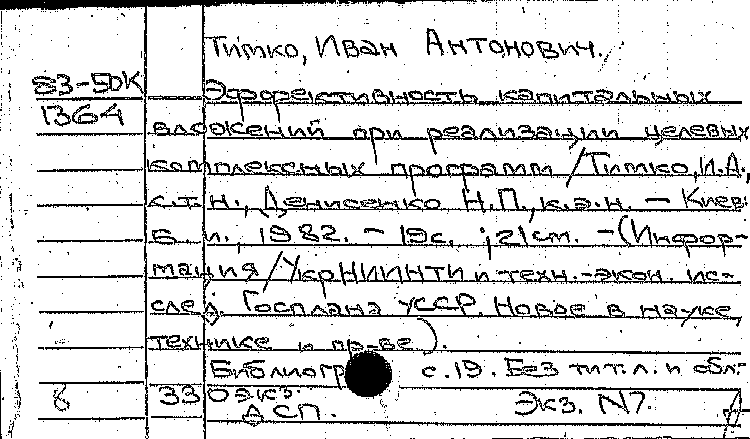 Тимко, Иван Антонович.
83-50К Эффективность капитальных
1364 вложений при реализации целевых
комплексных программ / Тимко, И.А.,
к.т.н., Денисенко Н.П., к.э.н. — Киев:
Б. и., 1982. - 19с. ; 21см. - (Инфор-
мация / УкрНИИНТИ и техн.-экон. ис-
след. Госплана УССР. Новое в науке,
технике и пр-ве).
Библиогр с.19. Без тит.л. и обл.-
8 330 экз.
ДСП. Экз. N7.